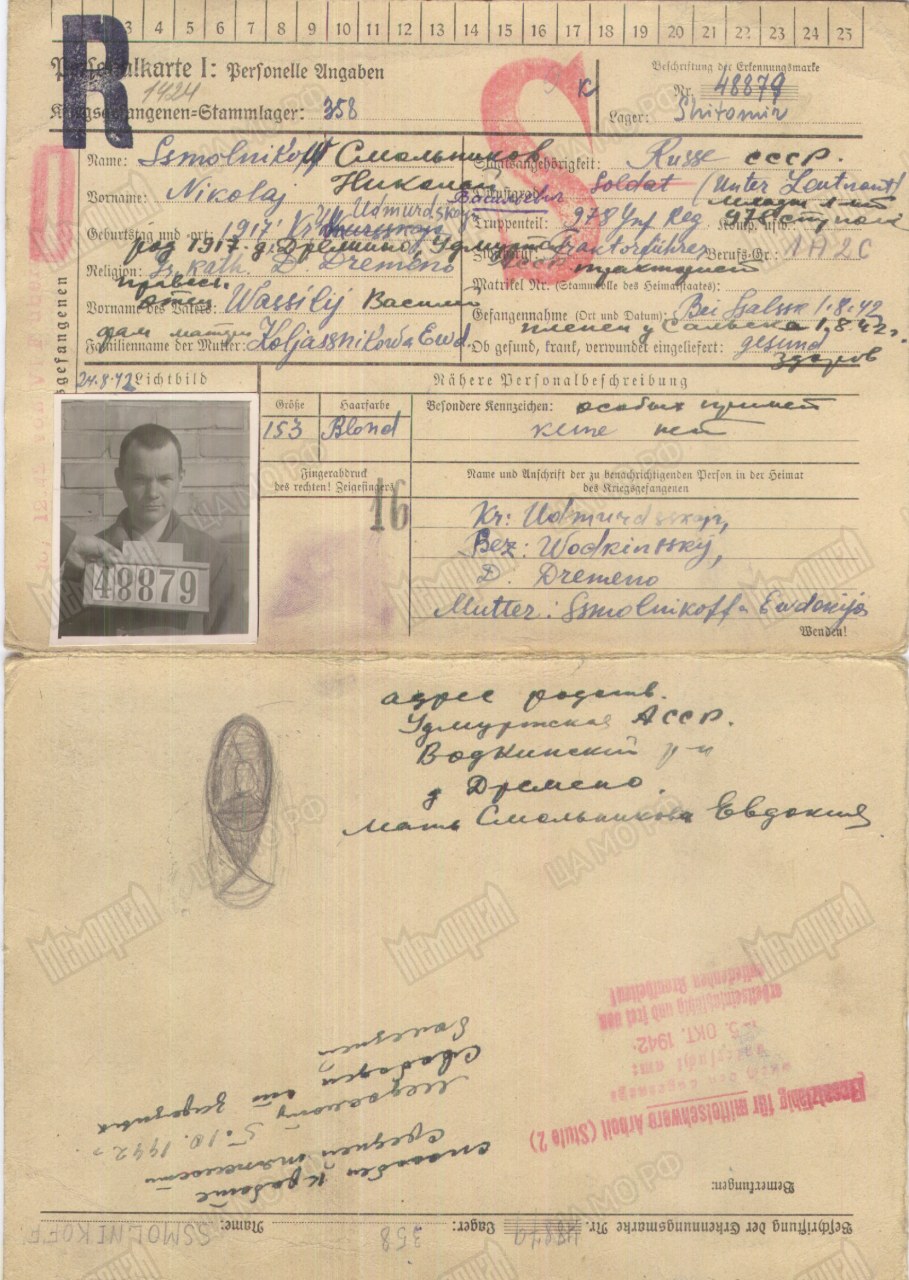 3 4 5 6 7 8 9 10 11 12 13 14 15 16 17 18 19 20 21 22 23 24 25
R
Personalkarte I: Personelle Angaben
1424
Kriegsgefangenen=Stammlager: 358
S
K
Beschriftung der Erkennungsmarke
Nr. 48879
Lager: Shitomir
Name: Ssmolnikoff Смольников
Vorname: Nikolaj Николай
Geburtstag und -ort: 1917 Kr Udmurdskaja
род 1917 д. Дремино, Удмуртск
Religion: kath. D. Dremeno
Vorname des Vaters: Wassilij Василий
отец
Familienname der Mutter: Koljassnikowa Ewd.
фам матери
Staatsangehörigkeit: Russe СССР.
Dienstgrad: Soldat (Unter Leutnant)
Truppenteil: 978 Inf Reg Komp. usw.: 978 стр полк
Zivilberuf: Traktorführer Berufs-Gr.: 1 A 2 C
тракторист
Matrikel Nr. (Stammrolle des Heimatstaates):
Gefangennahme (Ort und Datum): Bei Ssalssk 1.8.42
пленен у Сальска 1.8.42г.
Ob gesund, krank, verwundet eingeliefert: gesund
здоров
gefangenen
24.8.42 Lichtbild
Nähere Personalbeschreibung
Größe
Haarfarbe
Besondere Kennzeichen: особых примет
153
Blond
keine нет
Fingerabdruck
des rechten! Zeigefingers
16
Name und Anschrift der zu benachrichtigenden Person in der Heimat
des Kriegsgefangenen
48879
Kr: Udmurdsskaja,
Bez: Wodkinsskij,
D. Dremeno
Mutter: Ssmolnikoffa Ewdokija
Wenden!
адрес родств.
Удмуртская АССР.
Водкинский р-н
д Дремено.
Мать Смольникова Евдокия
Bemerkungen:
Einsatzfähig für mittelschwere Arbeit (Stufe 2)
5. OKT. 1942
arbeitseinsatzfähig und frei von
ansteckenden Krankheiten!
способен к работе
средней тяжести
5.10.1942г
свободен от заразных
болезней
Beschriftung der Erkennungsmarke Nr. 48879 Lager: 358 Name: SSMOLNIKOFF
Мемориал
ЦАМО РФ